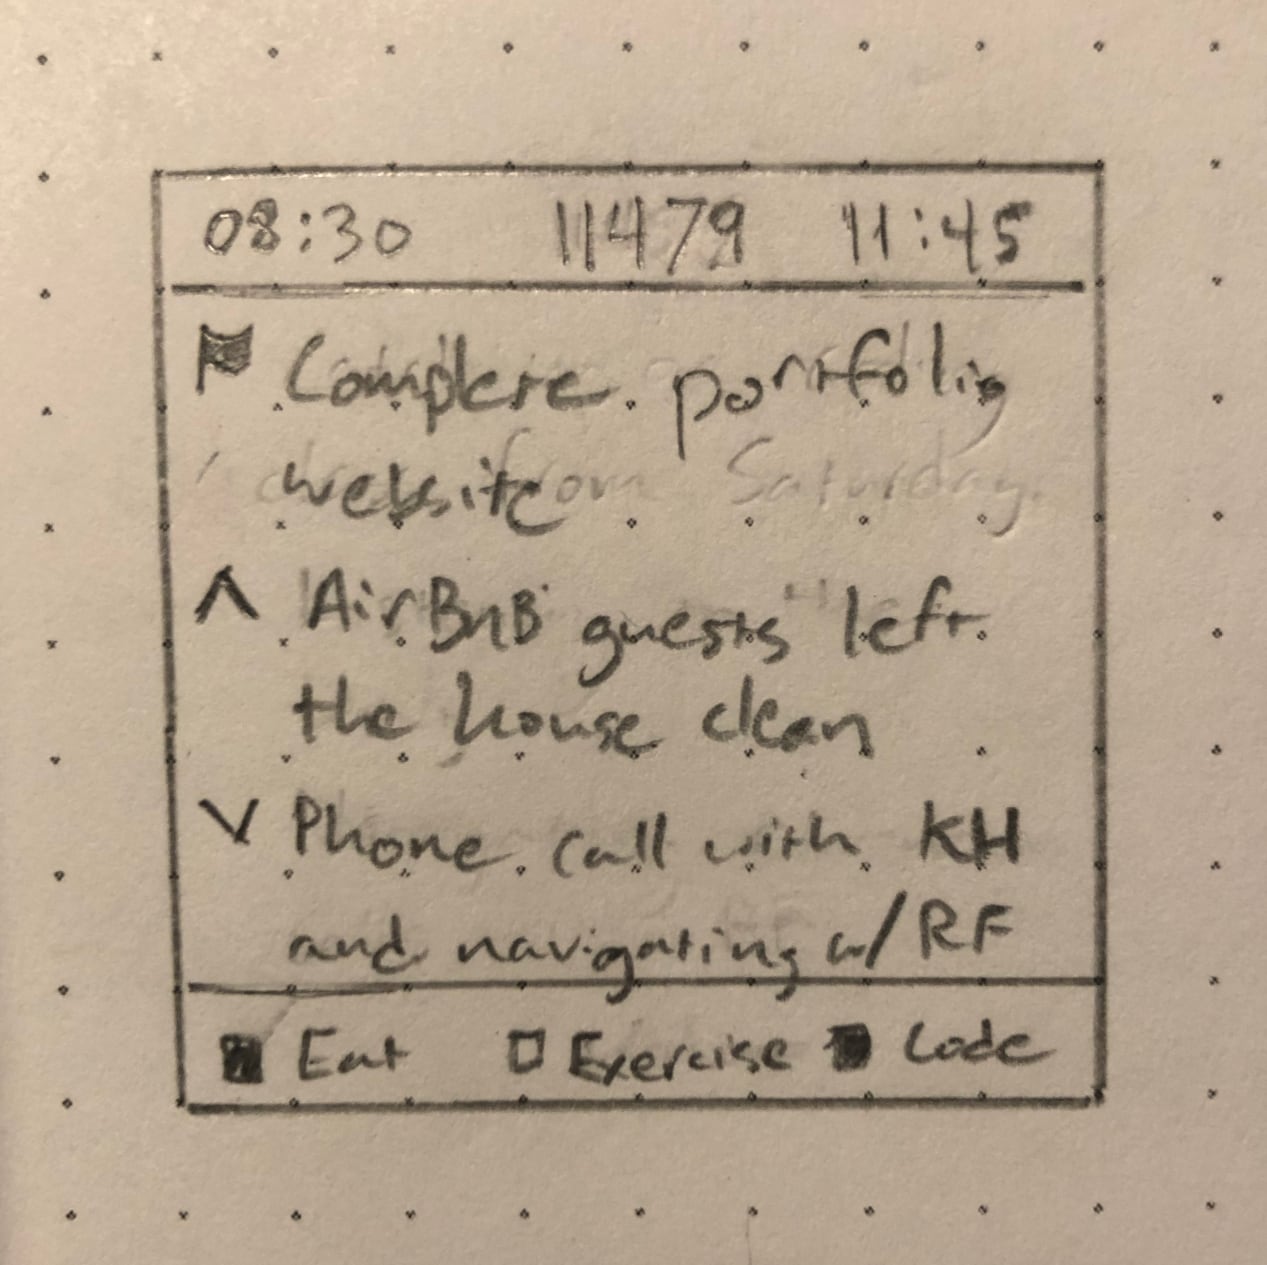 08:30 11479 11:45
Complete portfolio
website from Saturday.
AirBnB guests left
the house clean
Phone call with KH
and navigating w/RF
Eat Exercise Code